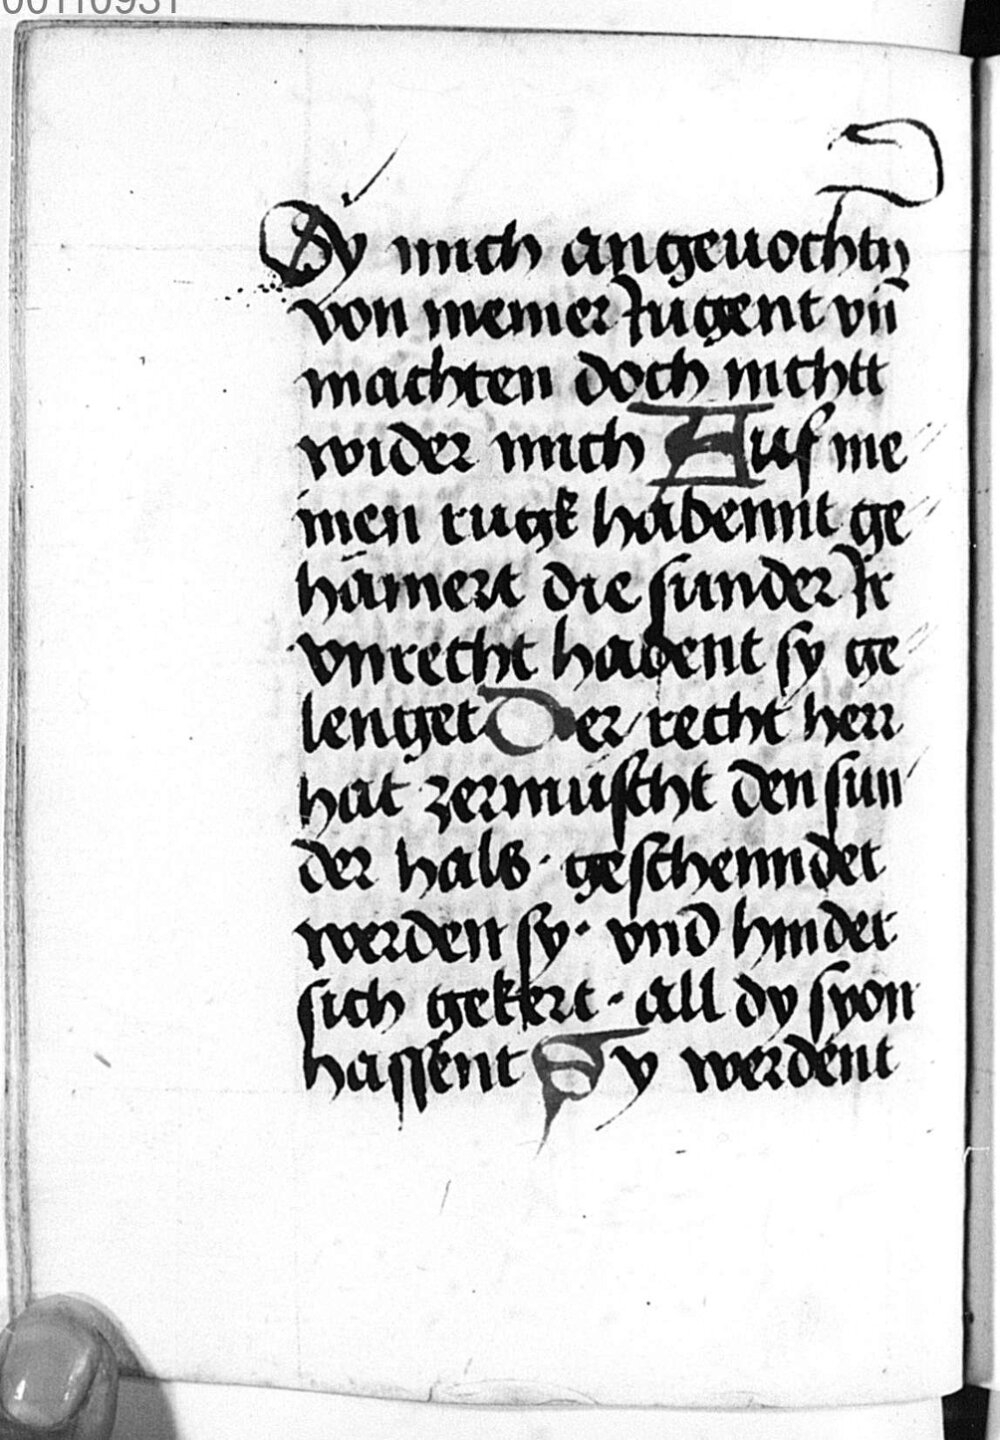 00110931
Dy mich angeuochtn
von meiner Jugent vn̄
machten doch nichtt
wider mich Auf mei
nien rugk habennt ge
hāmert die sunder Ir
vnrecht habent sy ge
lenget Der recht herr
hat zermüscht den sun
der hals · geschenndet
werden sy · vnd hinder
sich gekert · all dy syon
hassent Sy werdent